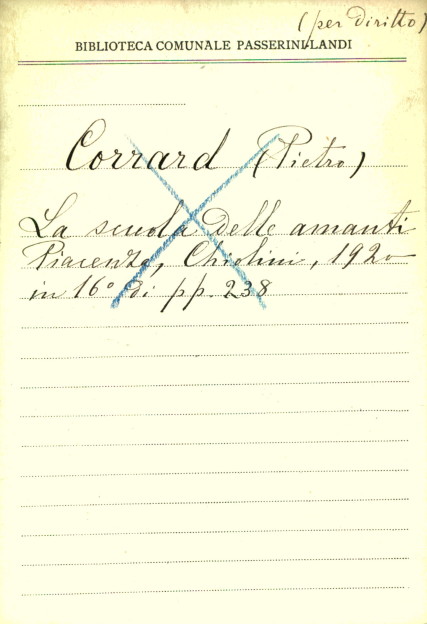 (per diritto)
BIBLIOTECA COMUNALE PASSERINI LANDI
Corrard (Pietro)
La scuola delle amanti
Piacenza, Chiolini, 1920
in 16° di pp. 238